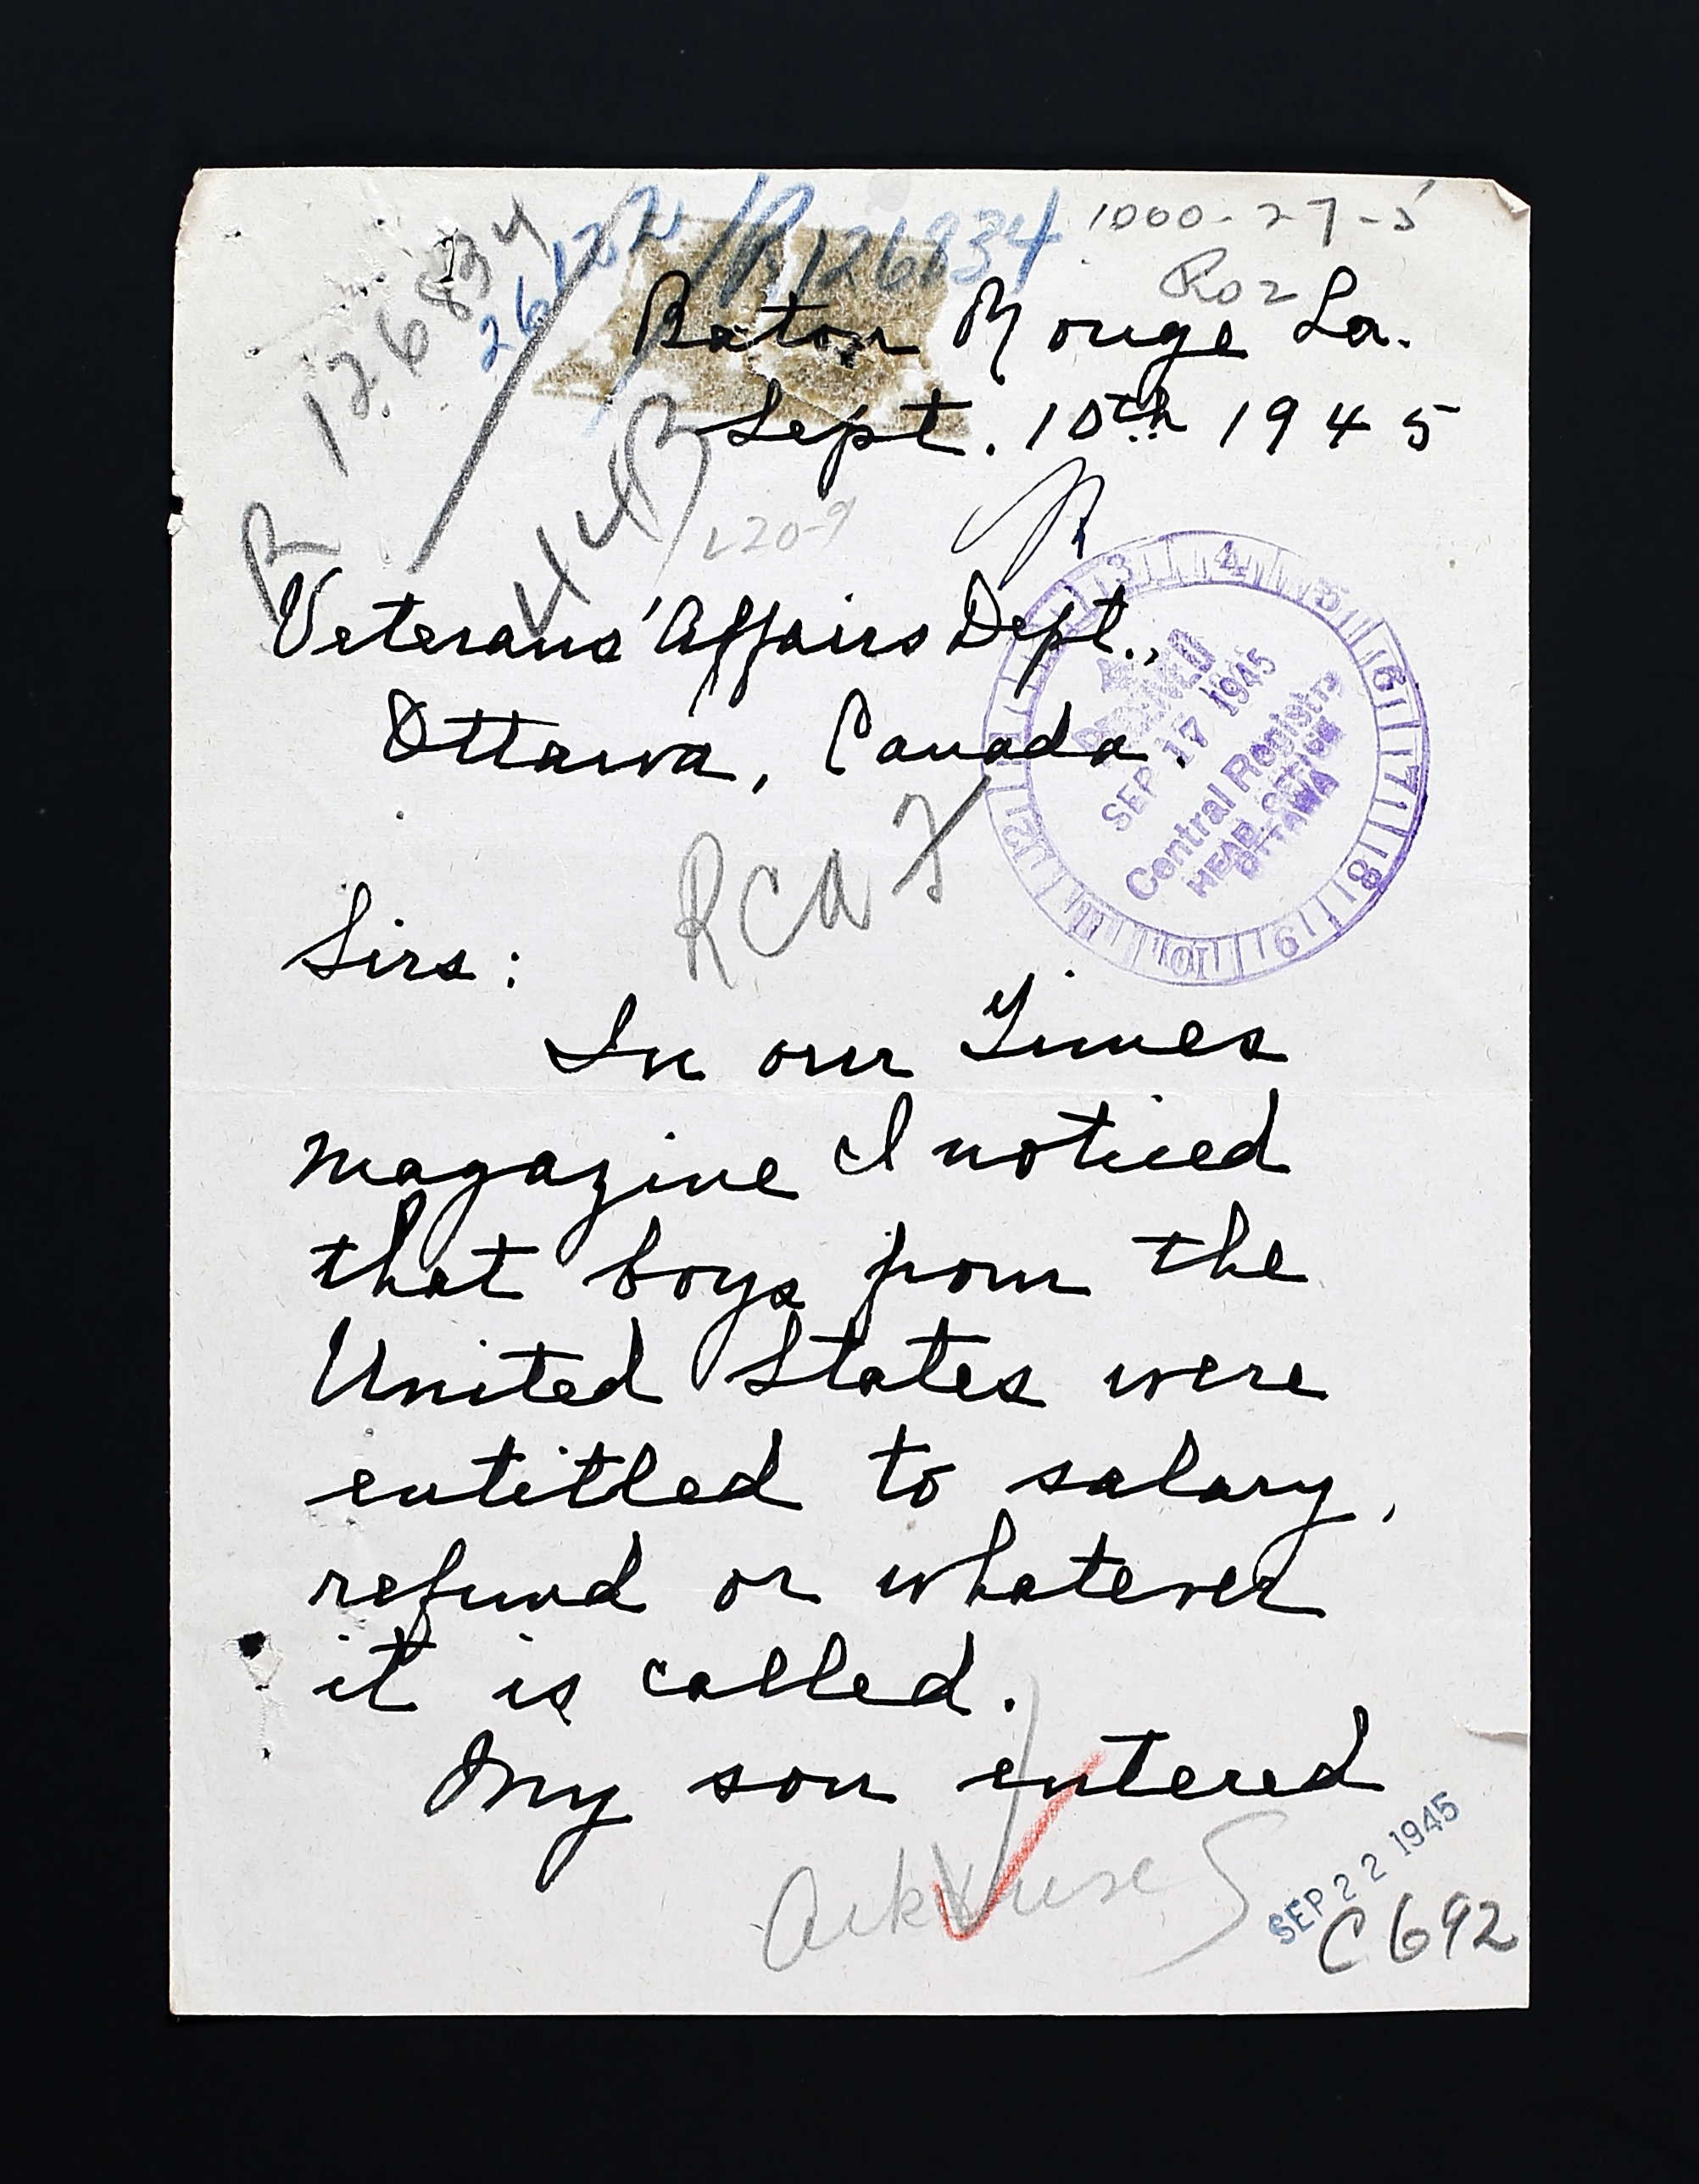 1000-27-5
R 126834
26122/R126834
R02
Baton Rouge La.
Sept. 10th 1945
220-9
Veterans' Affairs Dept.,
Ottawa, Canada.
3 4 5 6 7 8 9 10 11 12
RECEIVED
SEP 17 1945
Central Registry
HEAD OFFICE
OTTAWA
RCAF
Sirs:
In our Times
magazine I noticed
that boys from the
United States were
entitled to salary,
refund or whatever
it is called.
My son entered
SEP 22 1945
C692